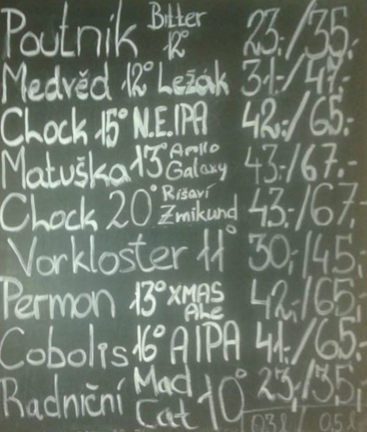 Poutník Bitter 12° 23,-/35,-
Medvěd 12° Ležák 31,-/47,-
Chock 15° N.E.IPA 42,-/65,-
Matuška 13° Galaxy 43,-/67,-
Chock 20° Zmikund 43,-/67,-
Vorkloster 11° 30,-/45,-
Permon 13° XMAS Ale 42,-/65,-
Cobolis 16° AIPA 41,-/65,-
Radniční Mad Cat 10° 23,-/35,-
0,3l / 0,5l